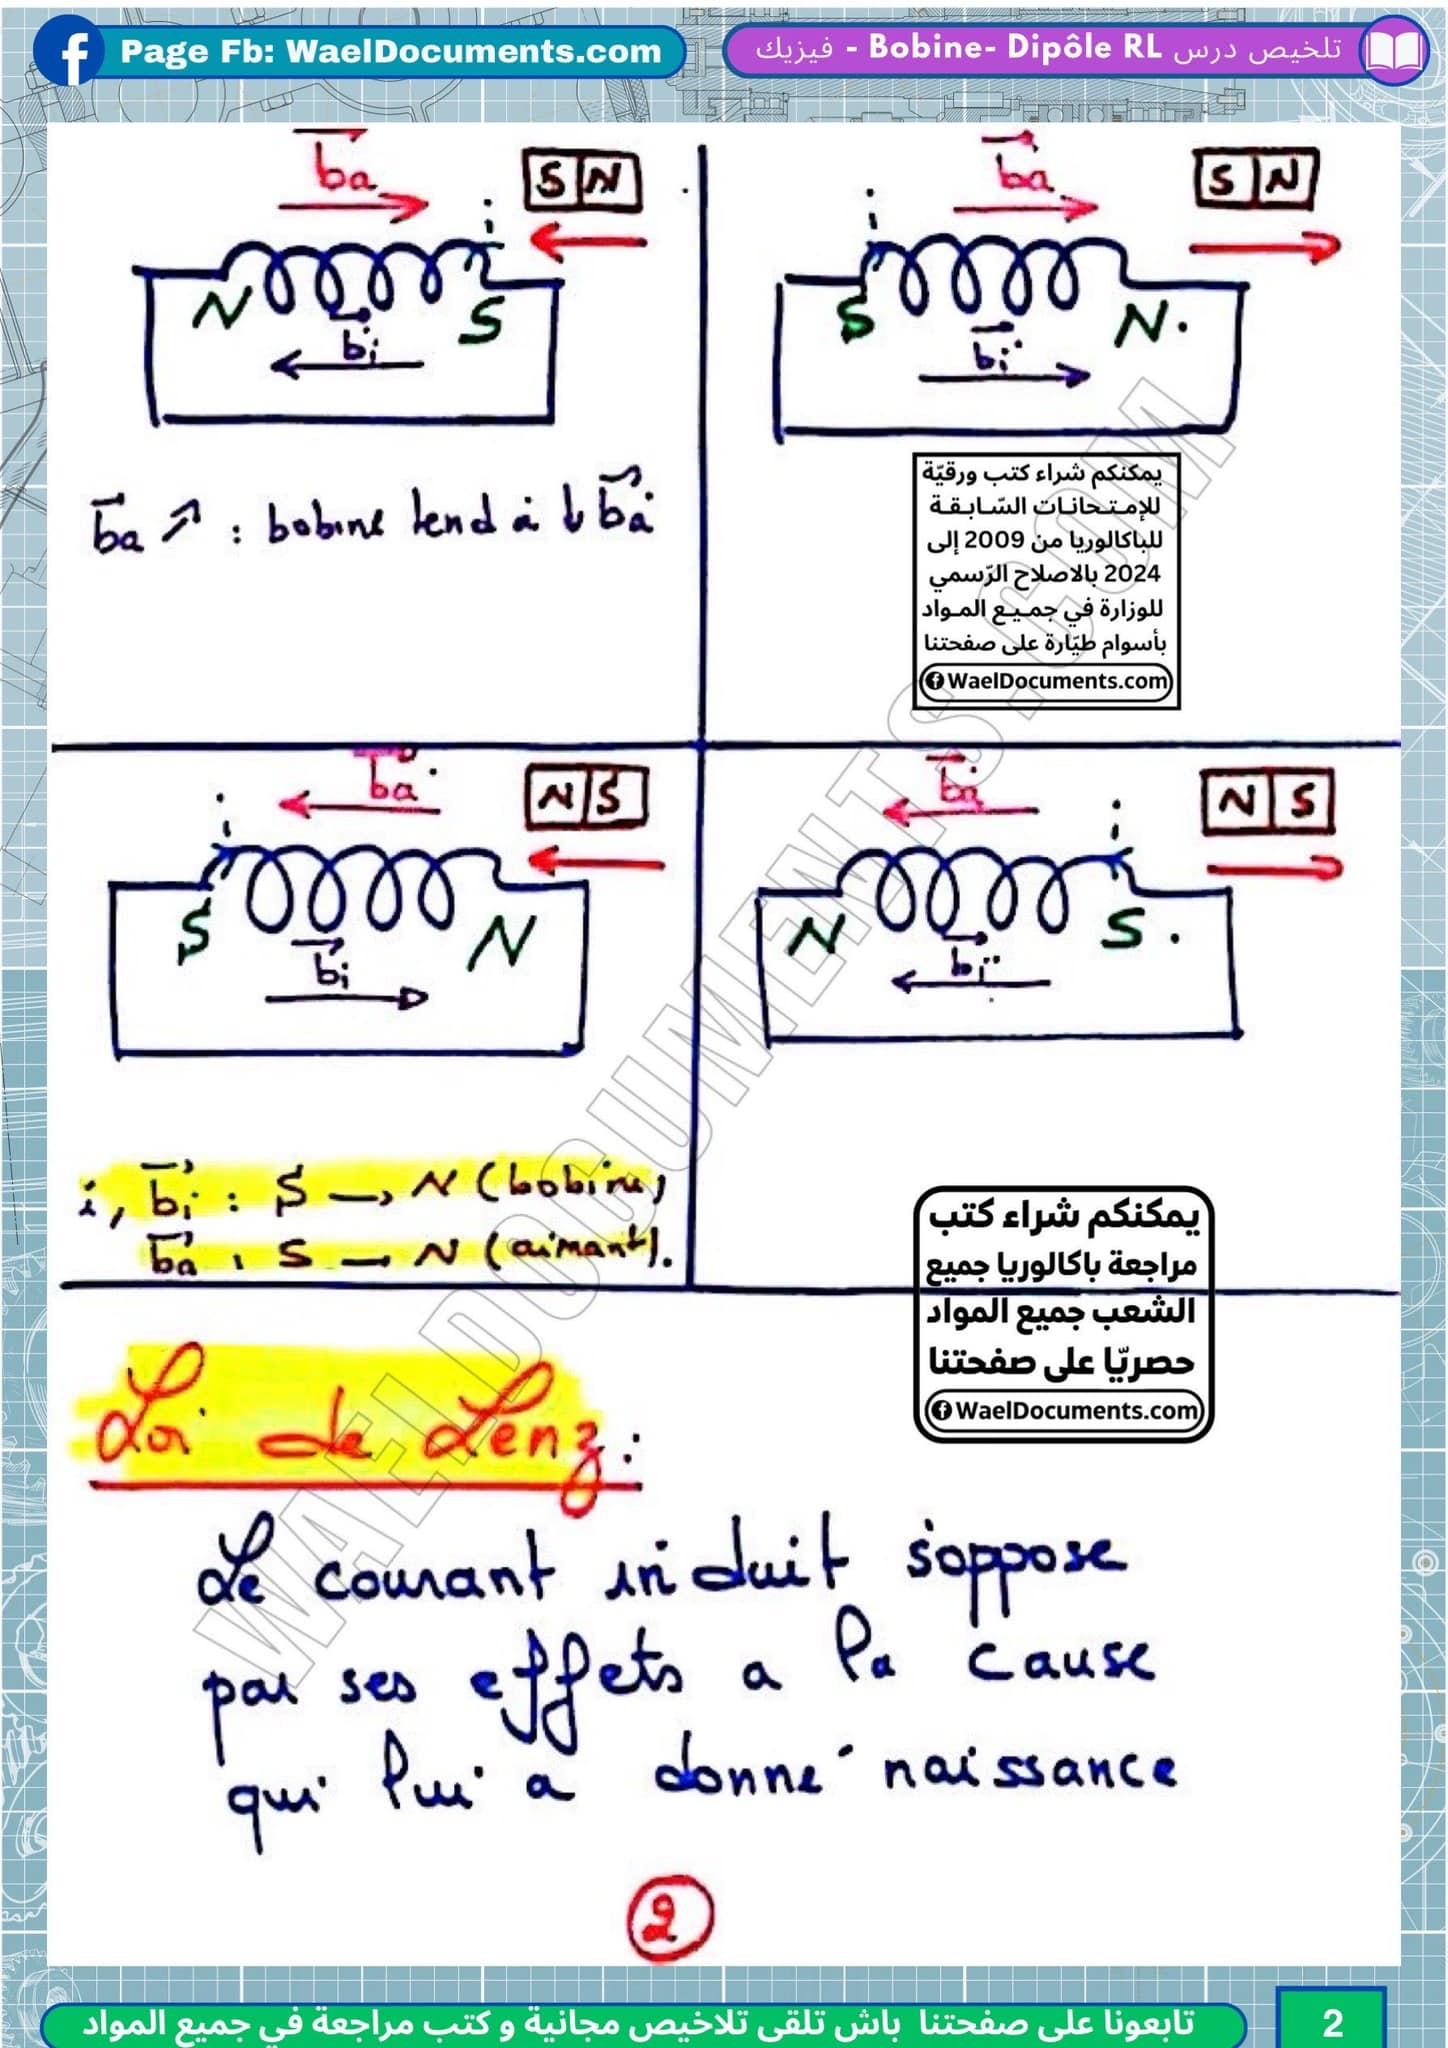 Page Fb: WaelDocuments.com
تلخيص درس Bobine- Dipôle RL - فيزيك
ba
S N
i
N
S
bi
ba ↗ : bobine tend à ↓ ba
ba
S N
i
S
N.
bi
يمكنكم شراء كتب ورقيّة
للإمتحانات السّابقة
للباكالوريا من 2009 إلى
2024 بالاصلاح الرّسمي
للوزارة في جميع المواد
بأسوام طيّارة على صفحتنا
WaelDocuments.com
ba
N S
i
S
N
bi
i, bi : S → N (bobine)
ba : S → N (aimant).
ba
N S
i
N
S.
bi
يمكنكم شراء كتب
مراجعة باكالوريا جميع
الشعب جميع المواد
حصريّا على صفحتنا
WaelDocuments.com
Loi de Lenz:
Le courant induit s'oppose
par ses effets a la cause
qui lui a donné naissance
2
WAELDOCUMENTS.COM
تابعونا على صفحتنا باش تلقى تلاخيص مجانية و كتب مراجعة في جميع المواد
2